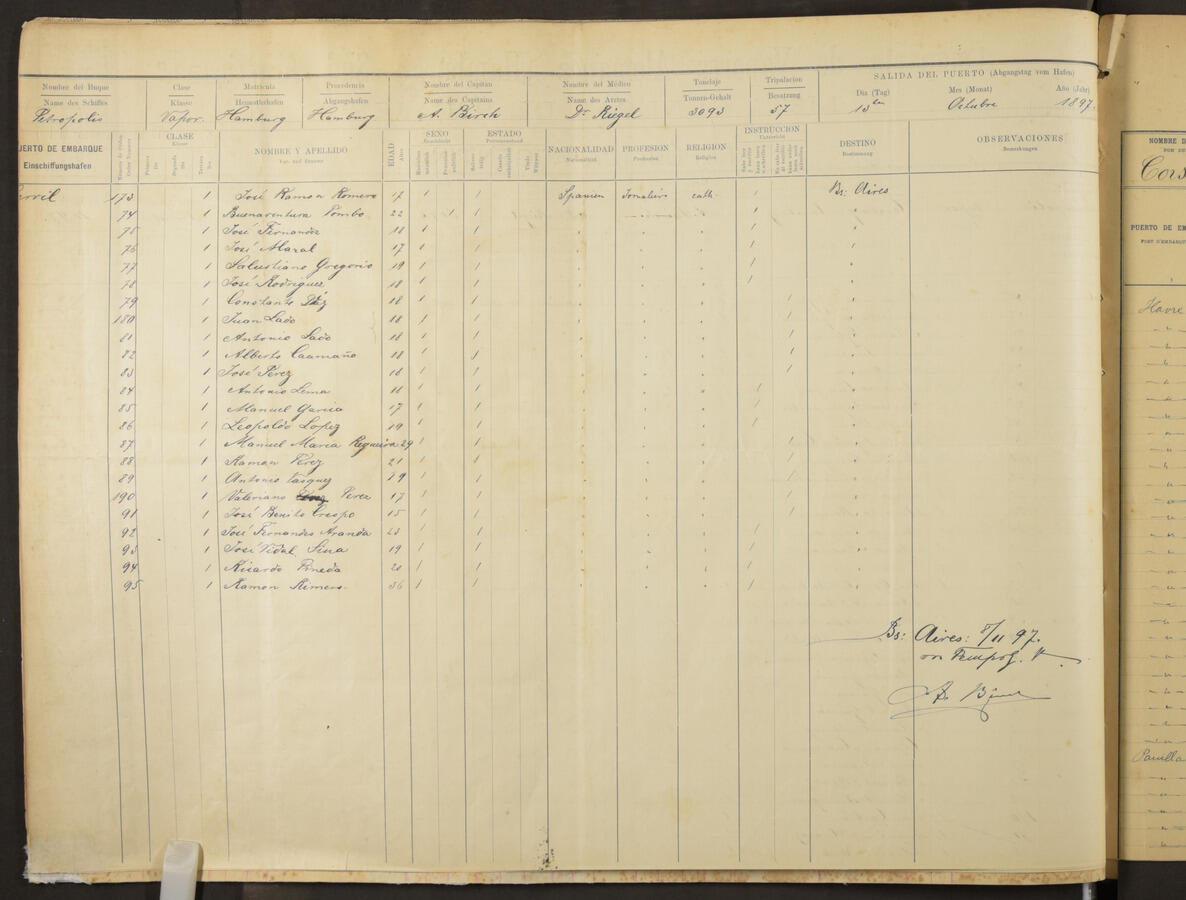 Nombre del Buque Clase Matricula Procedencia Nombre del Capitan Nombre del Médico Tonelaje Tripulacion SALIDA DEL PUERTO (Abgangstag vom Hafen)
Name des Schiffes Klasse Heimathshafen Abgangshafen Name des Capitains Name des Arztes Tonnen-Gehalt Besatzung Dia (Tag) Mes (Monat) Año (Jahr)
Petropolis Vapor. Hamburg Hamburg A. Birch Dr. Rügel 3093 57 13ten Octubre 1897.
UERTO DE EMBARQUE CLASE NOMBRE Y APELLIDO EDAD SEXO ESTADO NACIONALIDAD PROFESION RELIGION INSTRUCCION DESTINO OBSERVACIONES
Einschiffungshafen Klasse Vor- und Zuname Alter Geschlecht Personenstand Nationalität Profession Religion Unterricht Bestimmung Bemerkungen
173 1 José Ramon Romero 17 1 1 Spanien cath 1 Bs: Aires
74 1 Buenaventura Pombo 22 1 1 1
75 1 José Fernandez 18 1 1 1
76 1 José Maral 17 1 1 1
77 1 Salustiano Gregorio 19 1 1 1
78 1 José Rodriguez 18 1 1 1
79 1 Constante Diéz 18 1 1 1
180 1 Juan Lado 18 1 1 1
81 1 Antonio Lado 18 1 1 1
82 1 Alberto Caamaño 18 1 1 1
83 1 José Pérez 18 1 1 1
84 1 Antonio Lema 18 1 1 1
85 1 Manuel Garcia 17 1 1 1
86 1 Leopoldo Lopez 19 1 1 1
87 1 Manuel Maria Regueira 29 1 1 1
88 1 Ramon Perez 21 1 1 1
89 1 Antonio Vasquez 19 1 1 1
190 1 Valeriano Perez 17 1 1 1
91 1 José Benito Crespo 15 1 1 1
92 1 José Fernandes Aranda 23 1 1 1
93 1 José Vidal Sina 19 1 1 1
94 1 Ricardo Pineda 20 1 1 1
95 1 Ramon 36 1 1 1
Bs: Aires: 8/11 97.
NOMBRE D
Cors
PUERTO DE EM
PORT D'EMBARQU
Havre